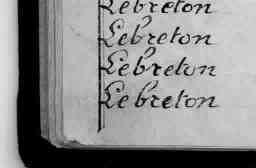 Lebreton
Lebreton
Lebreton
Lebreton